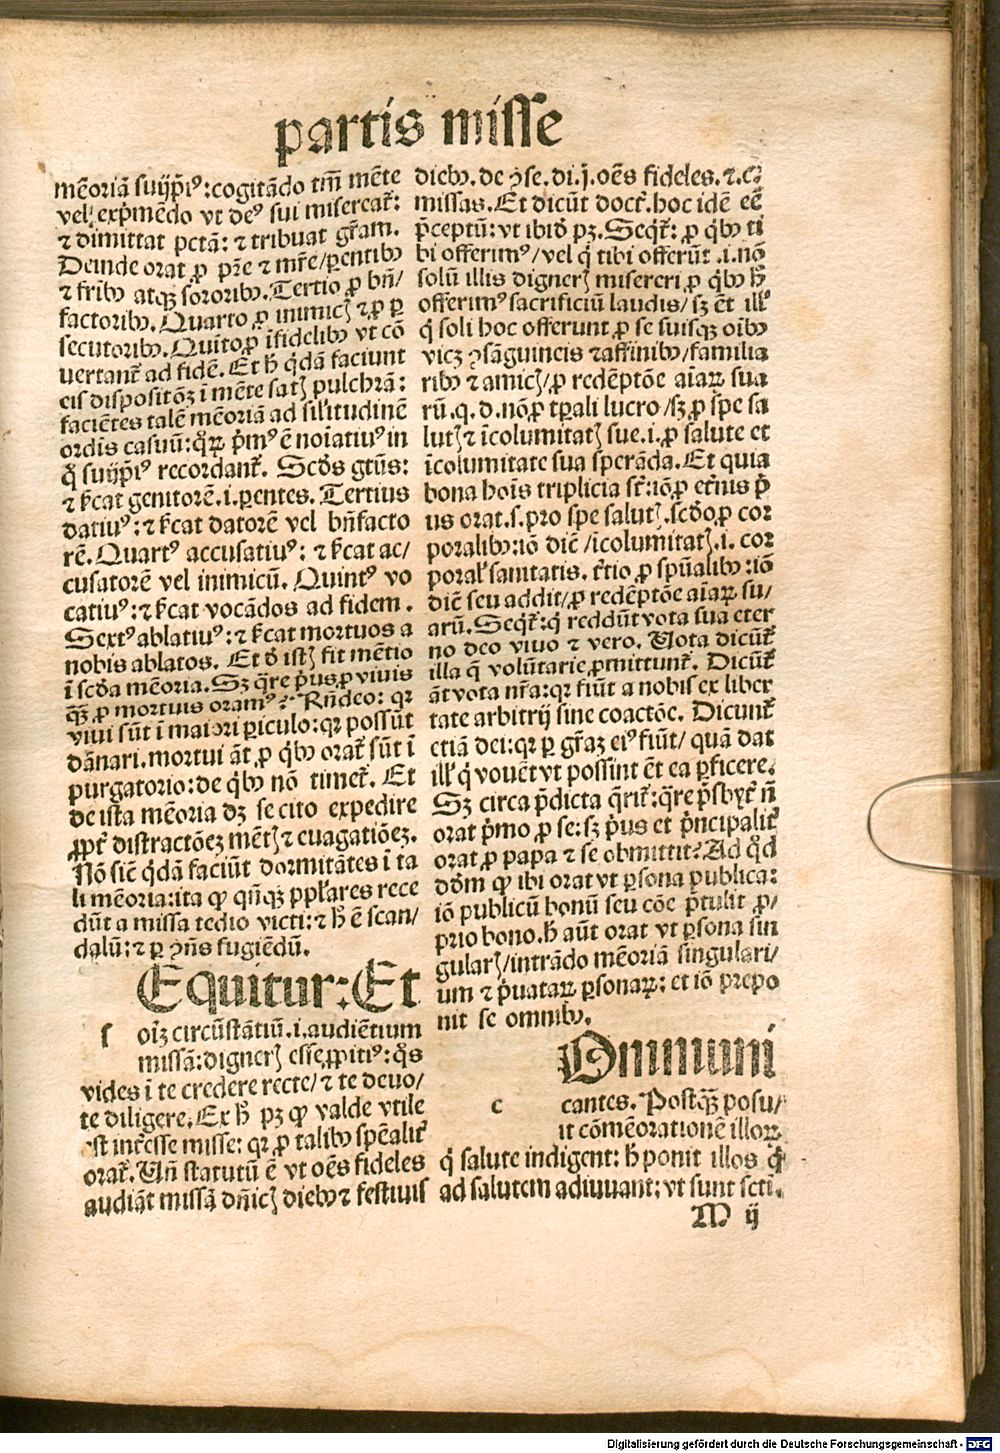 partis misse
mēoriā suijp̄iꝰ: cogitādo tm̄ mēte
vel exp̄mēdo vt deꝰ sui misercat̄:
⁊ dimittat pctā: ⁊ tribuat gr̄am.
Deinde orat ꝓ pr̄e ⁊ mr̄e/ ꝑentibꝰ
⁊ fribꝰ atqꝫ sororibꝰ. Tertio ꝓ bn̄/
factoribꝰ. Quarto ꝓ inimicꝭ ⁊ ꝓ ꝑ
secutoribꝰ. Quīto ꝓ īfidelibꝰ vt cō
uertant̄ ad fidē. Et ħ q̄dā faciunt
eis dispositōꝫ ī mēte satꝭ pulchrā:
faciētes talē mēoriā ad sil̓itudinē
ordīs casuū: qꝛꝝ p̄mꝰ ē noīatiuꝰ in
q̊ suijp̄iꝰ recordant̄. Scd̄s gtūs:
⁊ ſ̄cat genitorē. i. ꝑentes. Tertius
datiuꝰ: ⁊ ſ̄cat datorē vel bn̄facto
rē. Quartꝰ accusatiuꝰ: ⁊ ſ̄cat ac/
cusatorē vel inimicū. Quintꝰ vo
catiuꝰ: ⁊ ſ̄cat vocādos ad fidem.
Sextꝰ ablatiuꝰ: ⁊ ſ̄cat mortuos a
nobis ablatos. Et ð istꝭ fit mētio
ī scd̄a mēoria. Sꝫ q̄re p̄us ꝓ viuis
qꝫ̄ ꝓ mortuis oramꝰ? Rn̄deo: qꝛ
viui sūt ī maiori ꝑiculo: qꝛ possūt
dānari. mortui āt ꝓ q̄bꝰ orat̄ sūt ī
purgatorio: de q̄bꝰ nō timet̄. Et
de ista mēoria dꝫ se cito expedire
ꝓpt̄ distractōeꝫ mētꝭ ⁊ euagatiōeꝫ.
Nō sic̄ q̄dā faciūt dormitātes ī ta
li mēoria: ita ꝙ qn̄qꝫ ppl̓ares rece
dūt a missa tedio victi: ⁊ ħ ē scan/
dalū: ⁊ ꝑ ꝯn̄s fugiēdū.
Equitur: Et
ſ oīꝫ circūstātiū. i. audiētium
missā: dignerꝭ esse ꝓpitiꝰ: q̊s
vides ī te credere recte/ ⁊ te deuo/
te diligere. Ex ħ pꝫ ꝙ valde vtile
est int̄esse misse: qꝛ ꝓ talibꝰ spēalit̄
orat̄. Vn̄ statutū ē vt oēs fideles
audiāt missā dn̄icꝭ diebꝰ ⁊ festiuis
diebꝰ. de ꝯse. di. j. oēs fideles. ⁊. c.
missas. Et dicūt doct̄. hoc idē eē
p̄ceptū: vt ibið pꝫ. Seqt̄: ꝓ q̄bꝰ ti
bi offerimꝰ/ vel q̄ tibi offerūt. i. nō
solū illis dignerꝭ misereri ꝓ q̄bꝰ ħ
offerimꝰ sacrificiū laudis/ sꝫ ēt ill̓
q̄ soli hoc offerunt ꝓ se suisqꝫ oībꝰ
vicꝫ ꝯsāguineis ⁊ affinibꝰ/ familia
ribꝰ ⁊ amicꝭ/ ꝓ redēptōe aīaꝝ sua
rū. q. d. nō ꝓ tꝑali lucro/ sꝫ ꝓ spe sa
lutꝭ ⁊ īcolumitatꝭ sue. i. ꝓ salute et
īcolumitate sua sperāda. Et quia
bona hoīs triplicia st̄: iō ꝓ et̄nis p̄
us orat. s. pro spe salutꝭ. scd̄o ꝓ cor
poralibꝰ: iō dic̄/ īcolumitatꝭ. i. cor
poral̓ sanitatis. t̄tio ꝓ spūalibꝰ: iō
dic̄ seu addit/ ꝓ redēptōe aīaꝝ su/
arū. Seqt̄: q̄ reddūt vota sua eter
no deo viuo ⁊ vero. Vota dicūt̄
illa q̄ volūtarie ꝓmittunt̄. Dicūt̄
āt vota nr̄a: qꝛ fiūt a nobis ex liber
tate arbitrij sine coactōe. Dicunt̄
etiā dei: qꝛ ꝑ gr̄aꝫ eiꝰ fiūt/ quā dat
ill̓ q̄ vouēt vt possint ēt ea ꝑficere.
Sꝫ circa p̄dicta q̄rit̄: q̄re p̄sbyt̄ n̄
orat p̄mo ꝓ se: sꝫ p̄us et p̄ncipalit̄
orat ꝓ papa ⁊ se obmittit? Ad q̊d
dd̄m ꝙ ibi orat vt ꝑsona publica:
iō publicū bonū seu cōe p̄tulit ꝓ/
prio bono. ħ aūt orat vt ꝑsona sin
gularꝭ/ intrādo mēoriā singulari/
um ⁊ p̄uataꝝ ꝑsonaꝝ: et iō prepo
nit se omnibꝰ.
Ommuni
c cantes. Postqꝫ̄ posu/
it cōmēorationē illoꝝ
q̄ salute indigent: ħ ponit illos q̄
ad salutem adiuuant: vt sunt scti.
M ij
Digitalisierung gefördert durch die Deutsche Forschungsgemeinschaft - DFG